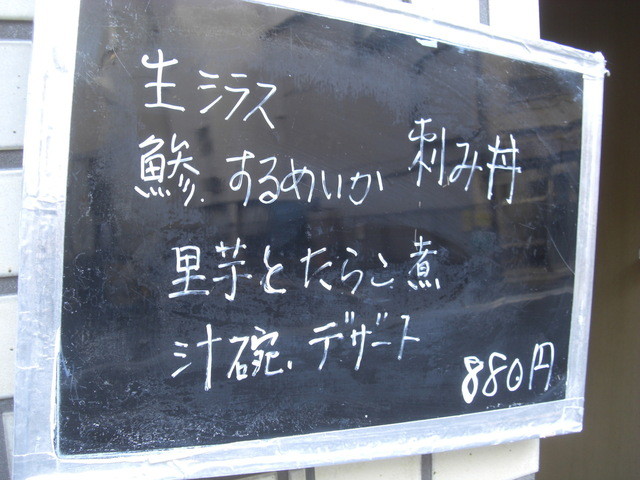 生シラス
鯵.するめいか 刺み丼
里芋とたらこ煮
汁碗、デザート
880円